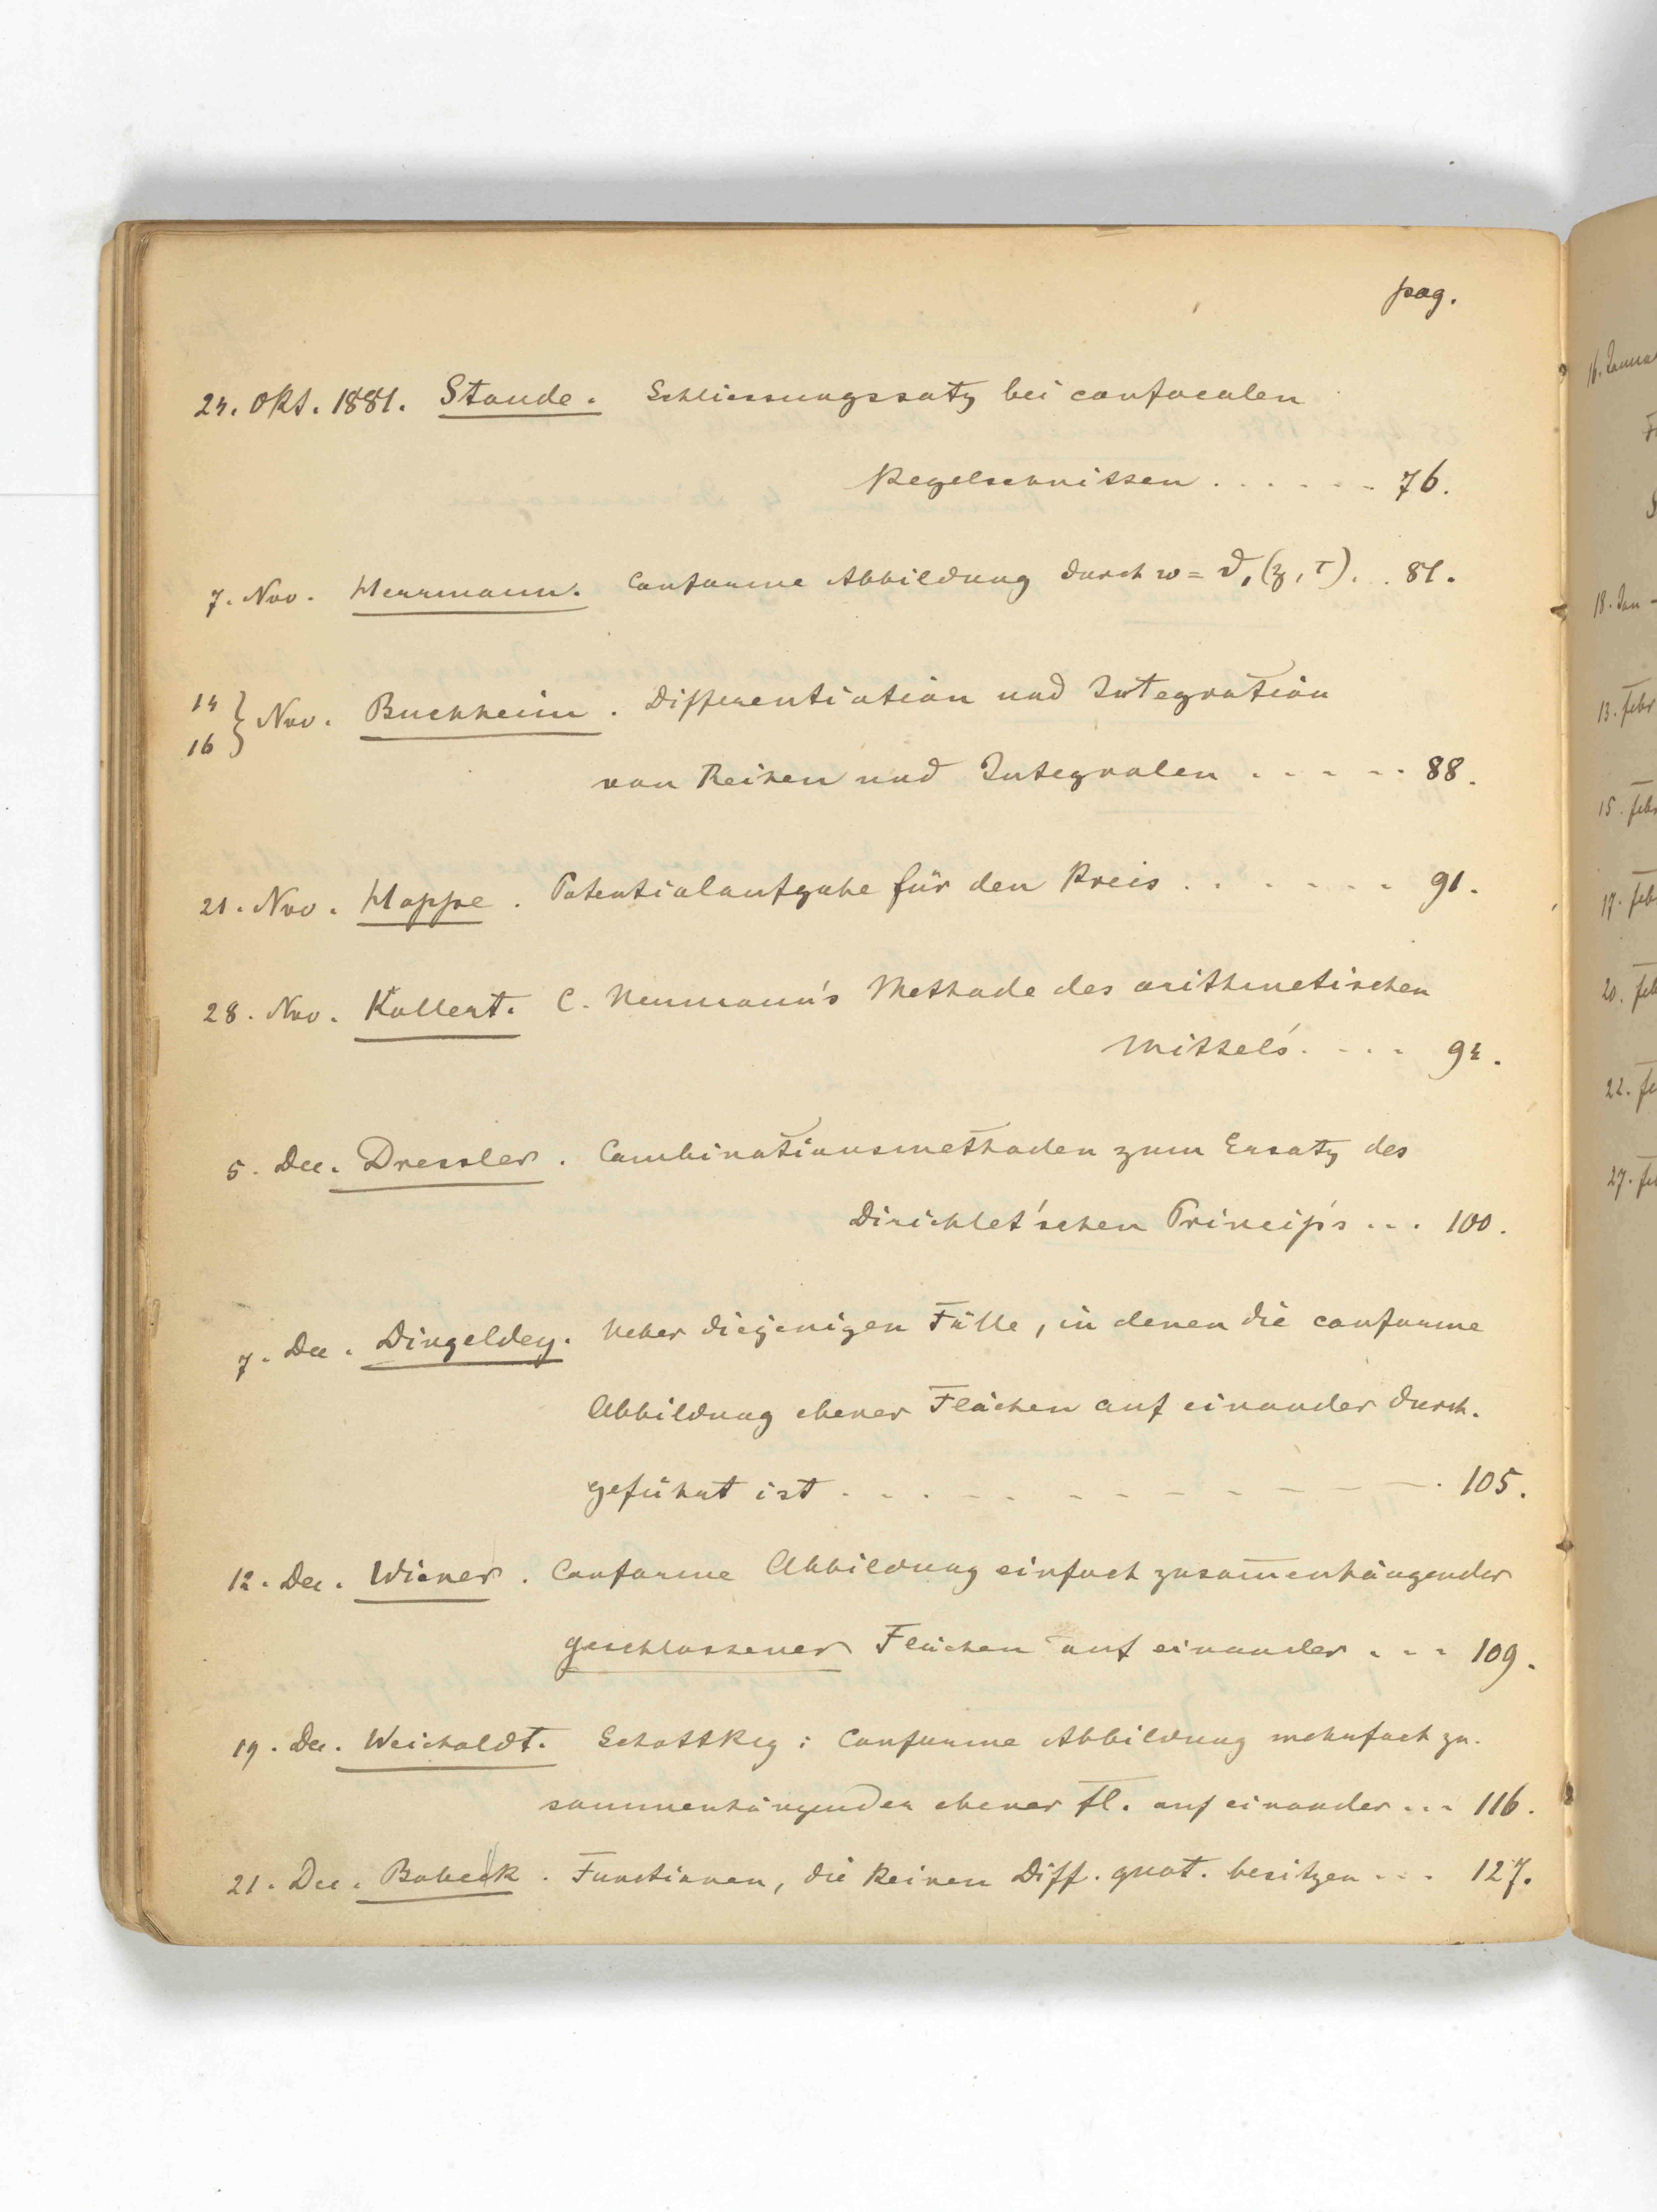 pag.
24. Okt. 1881. Staude. Schliessungssatz bei confocalen
Kegelschnitten . . . . . . 76.
7. Nov. Herrmann. Conforme Abbildung durch w = ϑ₁(z, τ). . . 81.
14
16 } Nov. Buchheim. Differentiation und Integration
von Reihen und Integralen . . . . . 88.
21. Nov. Hoppe. Potentialaufgabe für den Kreis . . . . . . . 91.
28. Nov. Kollert. C. Neumann's Methode des arithmetischen
Mittels. . . . . 94.
5. Dec. Dressler. Combinationsmethoden zum Ersatz des
Dirichlet'schen Princip's . . . 100.
7. Dec. Dingeldey. Ueber diejenigen Fälle, in denen die conforme
Abbildung ebener Flächen auf einander durch-
geführt ist . . . . . . . . . . . . . 105.
12. Dec. Wiener. Conforme Abbildung einfach zusam̅enhängender
geschlossener Flächen auf einander . . . 109.
19. Dec. Weicholdt. Schottky: Conforme Abbildung mehrfach zu-
sammenhängender ebener Fl. auf einander . . . 116.
21. Dec. Bobek. Functionen, die keinen Diff. quot. besitzen . . . 127.
16. Janua
18. Jan -
13. Febr
15. Febr
17. Feb
20. Feb
22. Fe
27. Fe